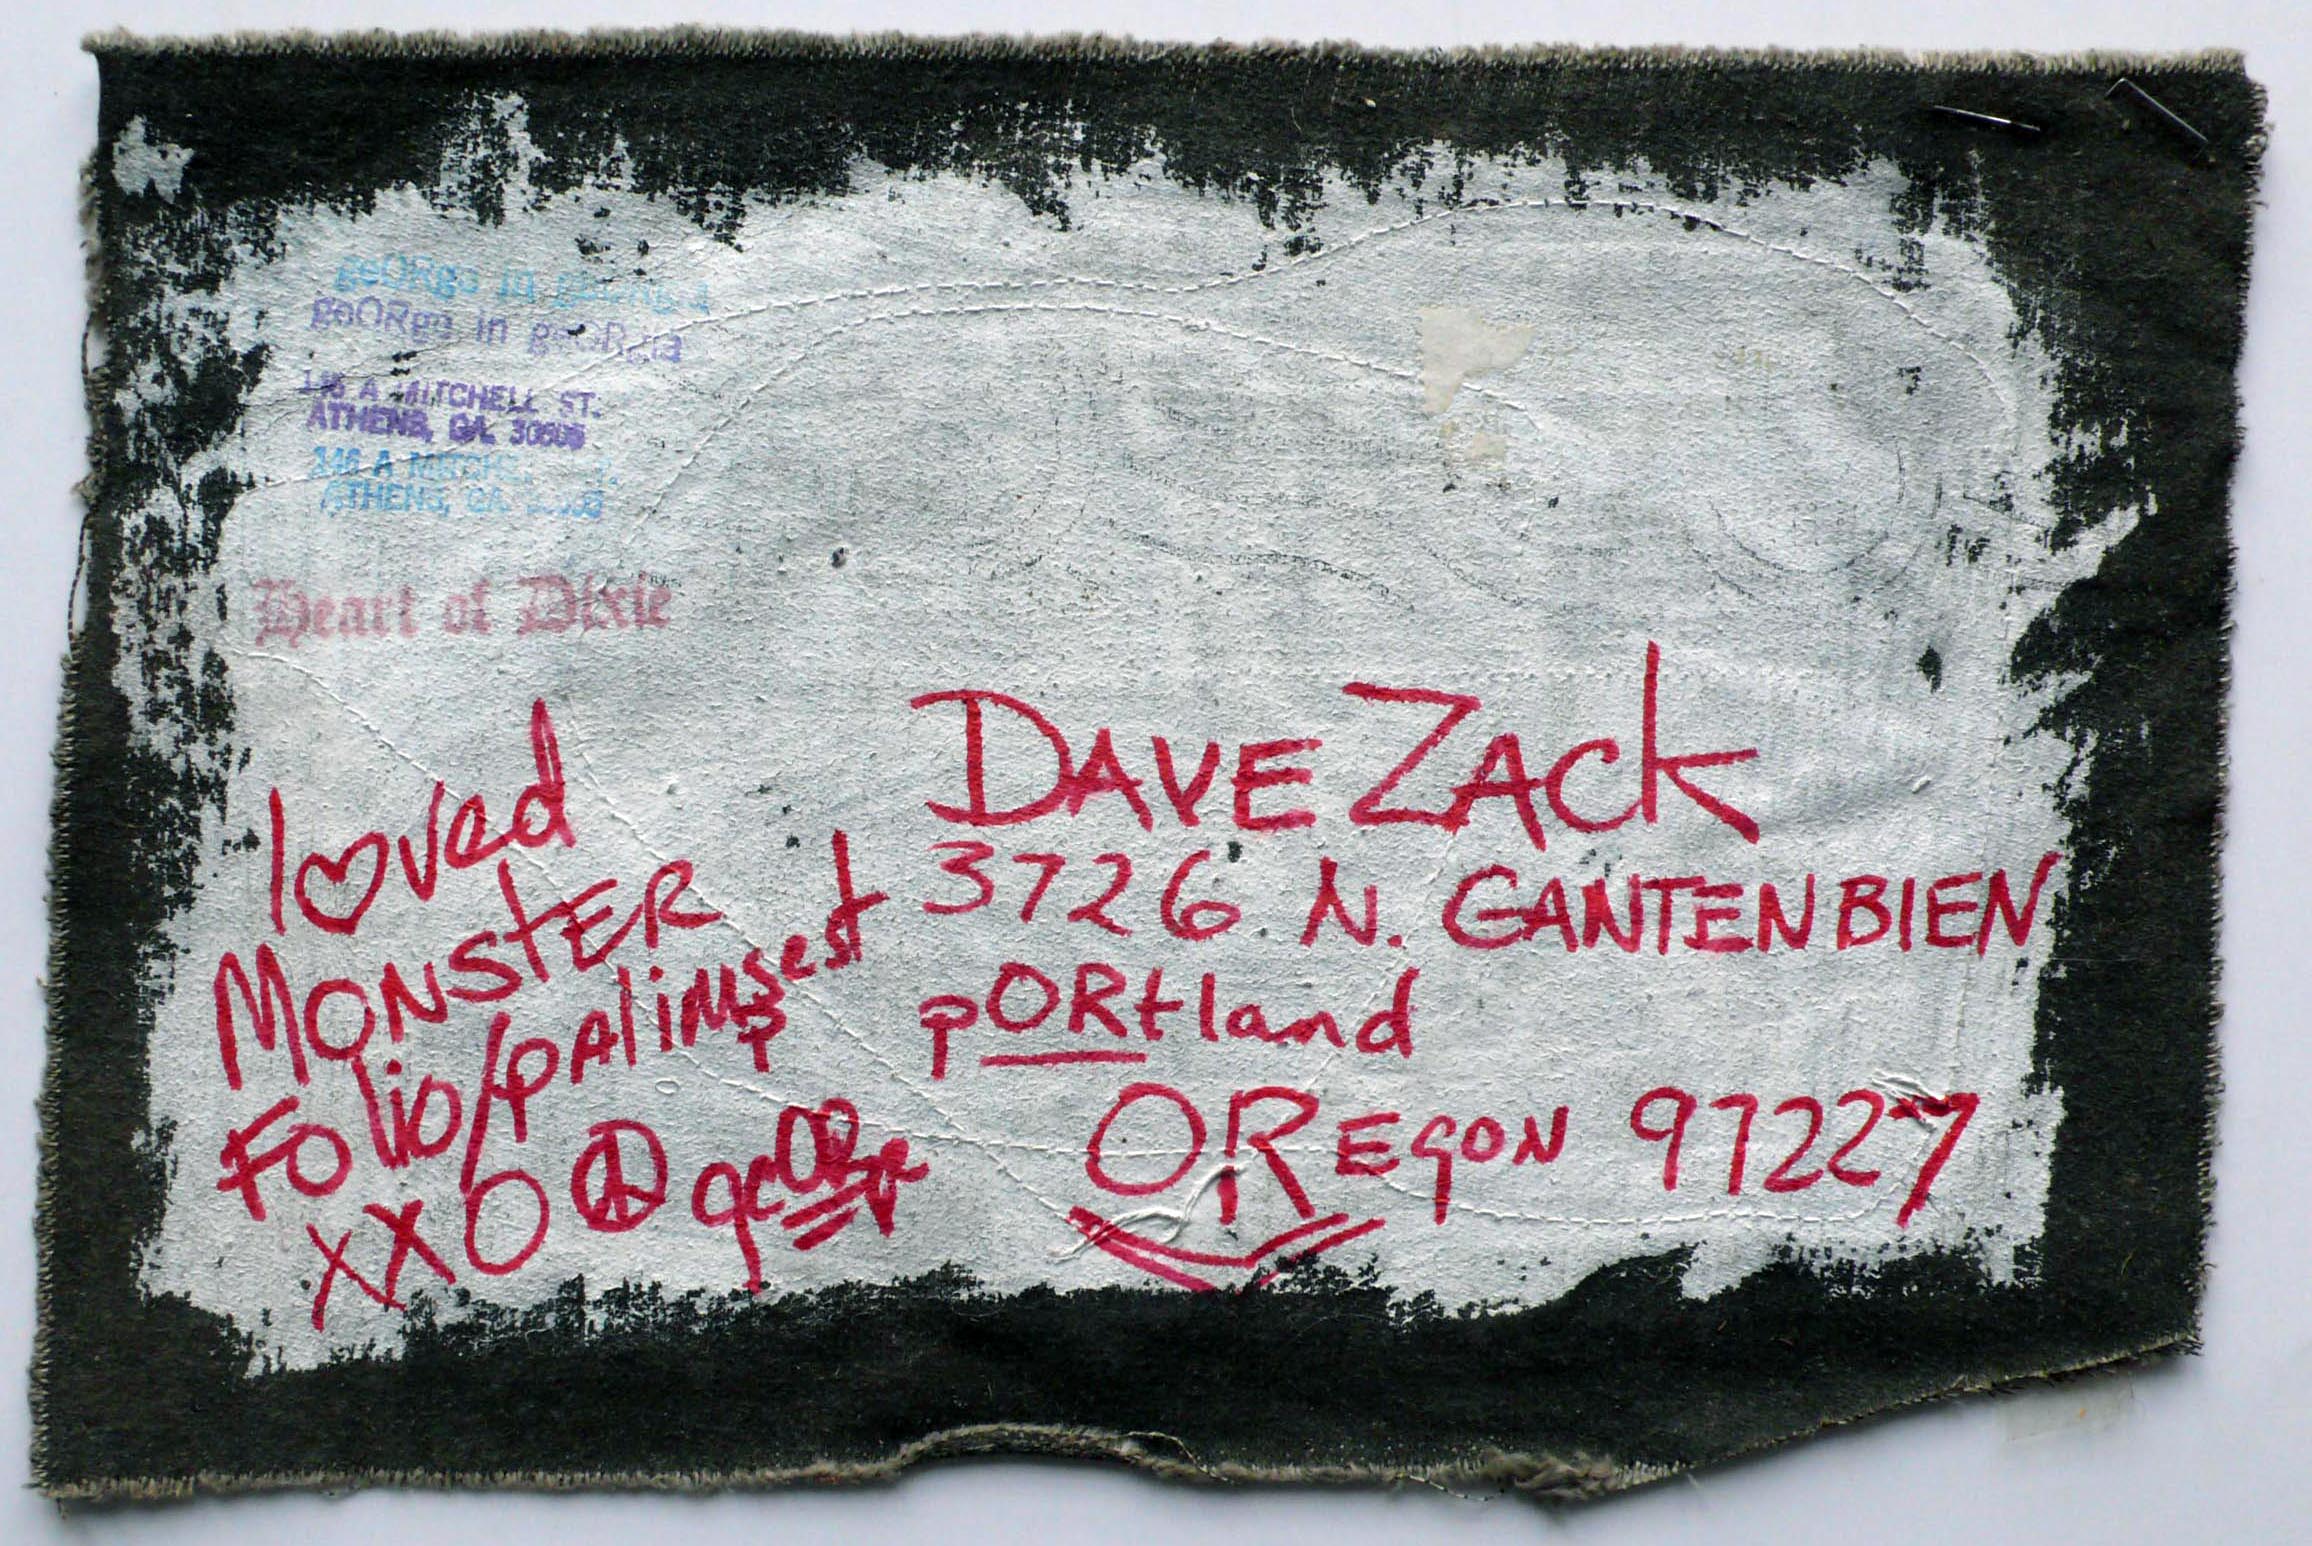 geORge in geORgia
geORge in geORgia
146 A MITCHELL ST.
ATHENS, GA. 30605
146 A
ATHENS, GA.
Heart of Dixie
loved
MONStER
FOlio/pAlimpsest
XXO geORge
DAVE ZACk
3726 N. GANTENBIEN
pORtland
OREgON 97227